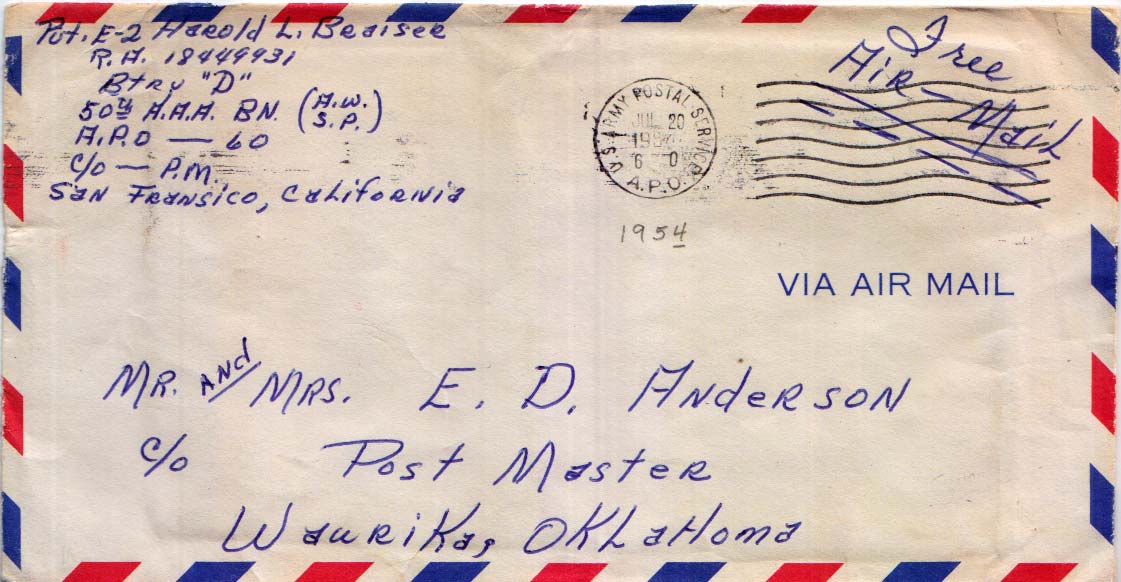 Pvt. E-2 Harold L. Braisee
R.A. 18449931
Btry "D"
50th A.A.A. BN. (A.W. S.P.)
A.P.O — 60
c/o — P.M.
San Fransico, California
Free
Air — Mail
U.S. ARMY POSTAL SERVICE
JUL 20
A.P.O.
1954
VIA AIR MAIL
Mr. and Mrs. E. D. Anderson
c/o Post Master
Waurika, Oklahoma